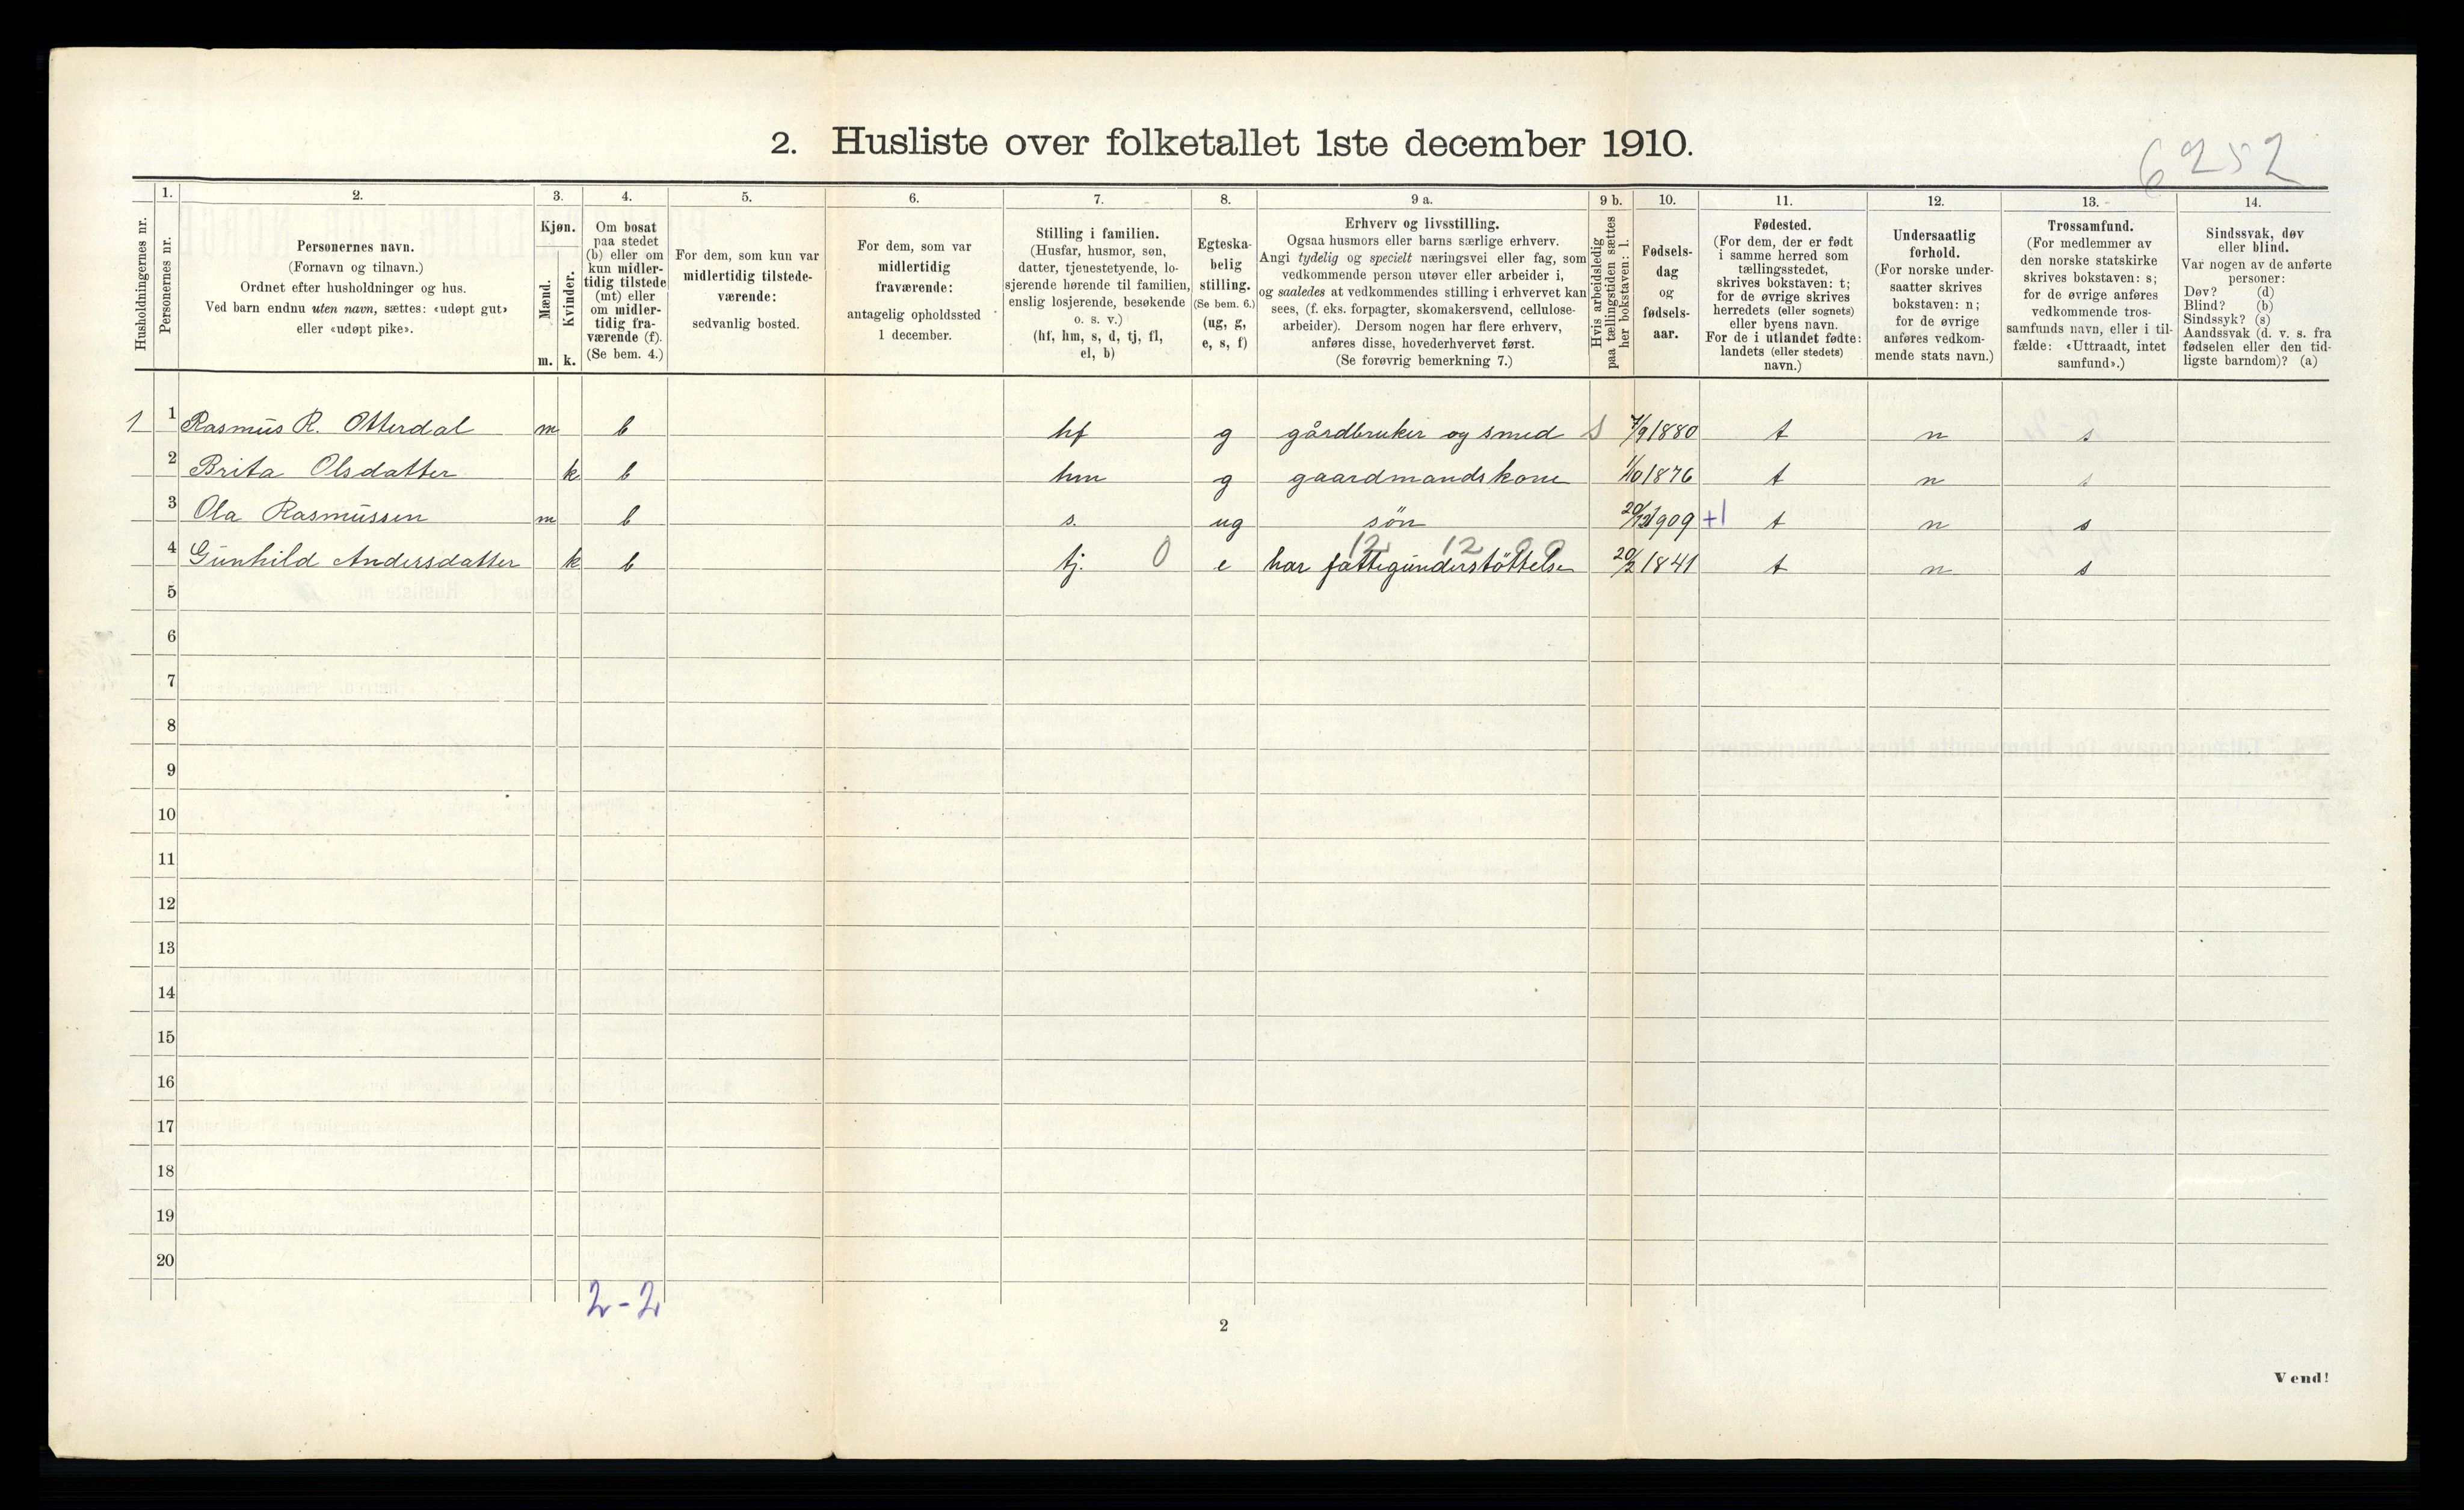 2. Husliste over folketallet 1ste december 1910.
6252
Husholdningernes nr.
1.
Personernes nr.
2.
Personernes navn.
(Fornavn og tilnavn.)
Ordnet efter husholdninger og hus.
Ved barn endnu uten navn, sættes: «udøpt gut»
eller «udøpt pike».
3.
Kjøn.
Mænd.
Kvinder.
m. k.
4.
Om bosat
paa stedet
(b) eller om
kun midler-
tidig tilstede
(mt) eller
om midler-
tidig fra-
værende (f).
(Se bem. 4.)
5.
For dem, som kun var
midlertidig tilstede-
værende:
sedvanlig bosted.
6.
For dem, som var
midlertidig
fraværende:
antagelig opholdssted
1 december.
7.
Stilling i familien.
(Husfar, husmor, søn,
datter, tjenestetyende, lo-
sjerende hørende til familien,
enslig losjerende, besøkende
o. s. v.)
(hf, hm, s, d, tj, fl,
el, b)
8.
Egteska-
belig
stilling.
(Se bem. 6.)
(ug, g,
e, s, f)
9 a.
Erhverv og livsstilling.
Ogsaa husmors eller barns særlige erhverv.
Angi tydelig og specielt næringsvei eller fag, som
vedkommende person utøver eller arbeider i,
og saaledes at vedkommendes stilling i erhvervet kan
sees, (f. eks. forpagter, skomakersvend, cellulose-
arbeider). Dersom nogen har flere erhverv,
anføres disse, hovederhvervet først.
(Se forøvrig bemerkning 7.)
9 b.
Hvis arbeidsledig
paa tællingstiden sættes
her bokstaven: l.
10.
Fødsels-
dag
og
fødsels-
aar.
11.
Fødested.
(For dem, der er født
i samme herred som
tællingsstedet,
skrives bokstaven: t;
for de øvrige skrives
herredets (eller sognets)
eller byens navn.
For de i utlandet fødte:
landets (eller stedets)
navn.)
12.
Undersaatlig
forhold.
(For norske under-
saatter skrives
bokstaven: n;
for de øvrige
anføres vedkom-
mende stats navn.)
13.
Trossamfund.
(For medlemmer av
den norske statskirke
skrives bokstaven: s;
for de øvrige anføres
vedkommende tros-
samfunds navn, eller i til-
fælde: «Uttraadt, intet
samfund».)
14.
Sindssvak, døv
eller blind.
Var nogen av de anførte
personer:
Døv? (d)
Blind? (b)
Sindssyk? (s)
Aandssvak (d. v. s. fra
fødselen eller den tid-
ligste barndom)? (a)
1 1 Rasmus R. Otterdal m b hf g gårdbruker og smed s 7/9 1880 t n s
2 Brita Olsdatter k b hm g gaardmandskone 1/10 1876 t n s
3 Ola Rasmussen m b s. ug søn 20/12 1909 +1 t n s
12 12 0 0
4 Gunhild Andersdatter k b tj. 0 e har fattigunderstöttelse 20/2 1841 t n s
5
6
7
8
9
10
11
12
13
14
15
16
17
18
19
20
2-2
2
Vend!